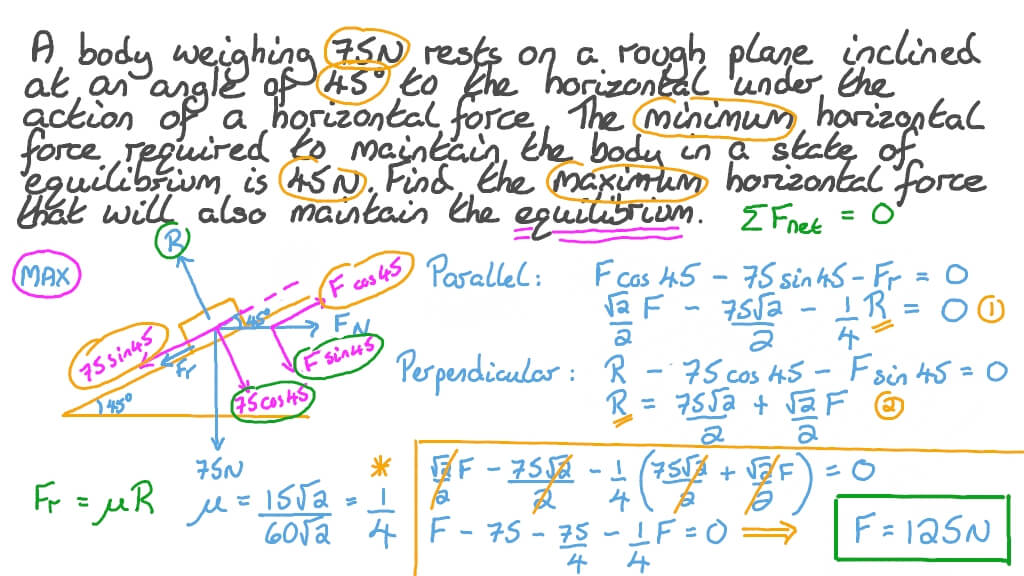 A body weighing 75N rests on a rough plane inclined
at an angle of 45° to the horizontal under the
action of a horizontal force. The minimum horizontal
force required to maintain the body in a state of
equilibrium is 45N. Find the maximum horizontal force
that will also maintain the equilibrium.
ΣFnet = 0
R
MAX
F cos 45
45°
F N
75 sin 45
Fr
F sin 45
75 cos 45
45°
75N
Parallel: F cos 45 - 75 sin 45 - Fr = 0
√2/2 F - 75√2/2 - 1/4 R = 0 ①
Perpendicular: R - 75 cos 45 - F sin 45 = 0
R = 75√2/2 + √2/2 F ②
Fr = μR
μ = 15√2/60√2 = 1/4 *
√2/2 F - 75√2/2 - 1/4 (75√2/2 + √2/2 F) = 0
F - 75 - 75/4 - 1/4 F = 0 ⟹ F = 125N